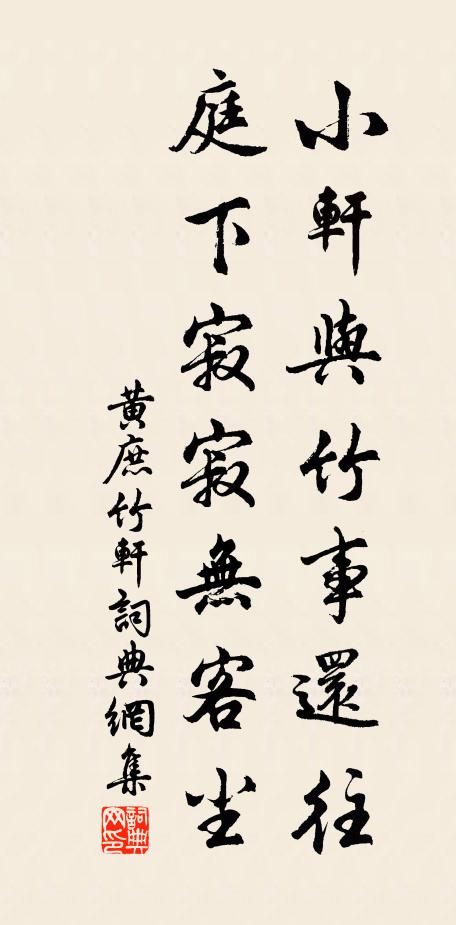 小軒與竹事還往
庭下寂寂無客尘
黃庶竹軒詞典網集
詞典
网印